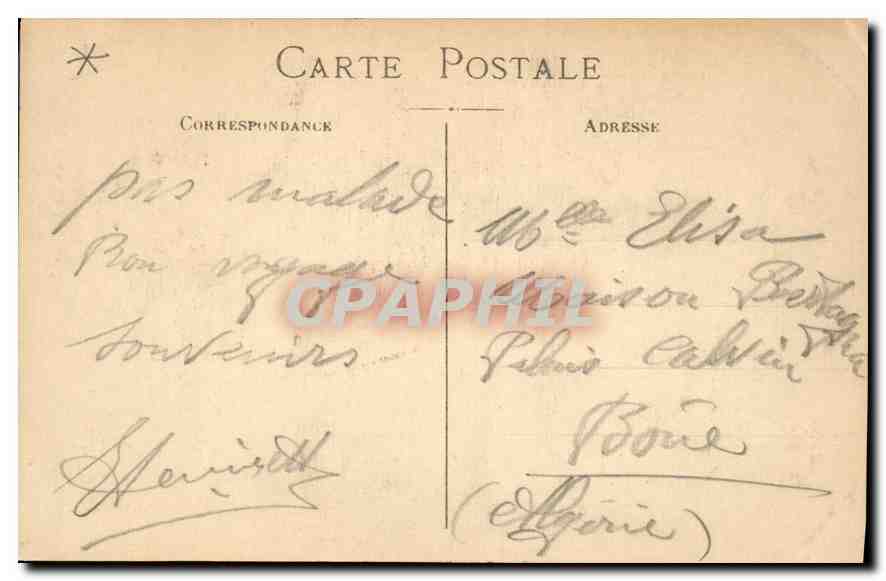 CARTE POSTALE
CORRESPONDANCE
pas malade
Bon voyage
souvenirs
ADRESSE
Mlle Elisa
Maison Bertagna
Palais Calvin
Bône
(Algérie)
CPAPHIL